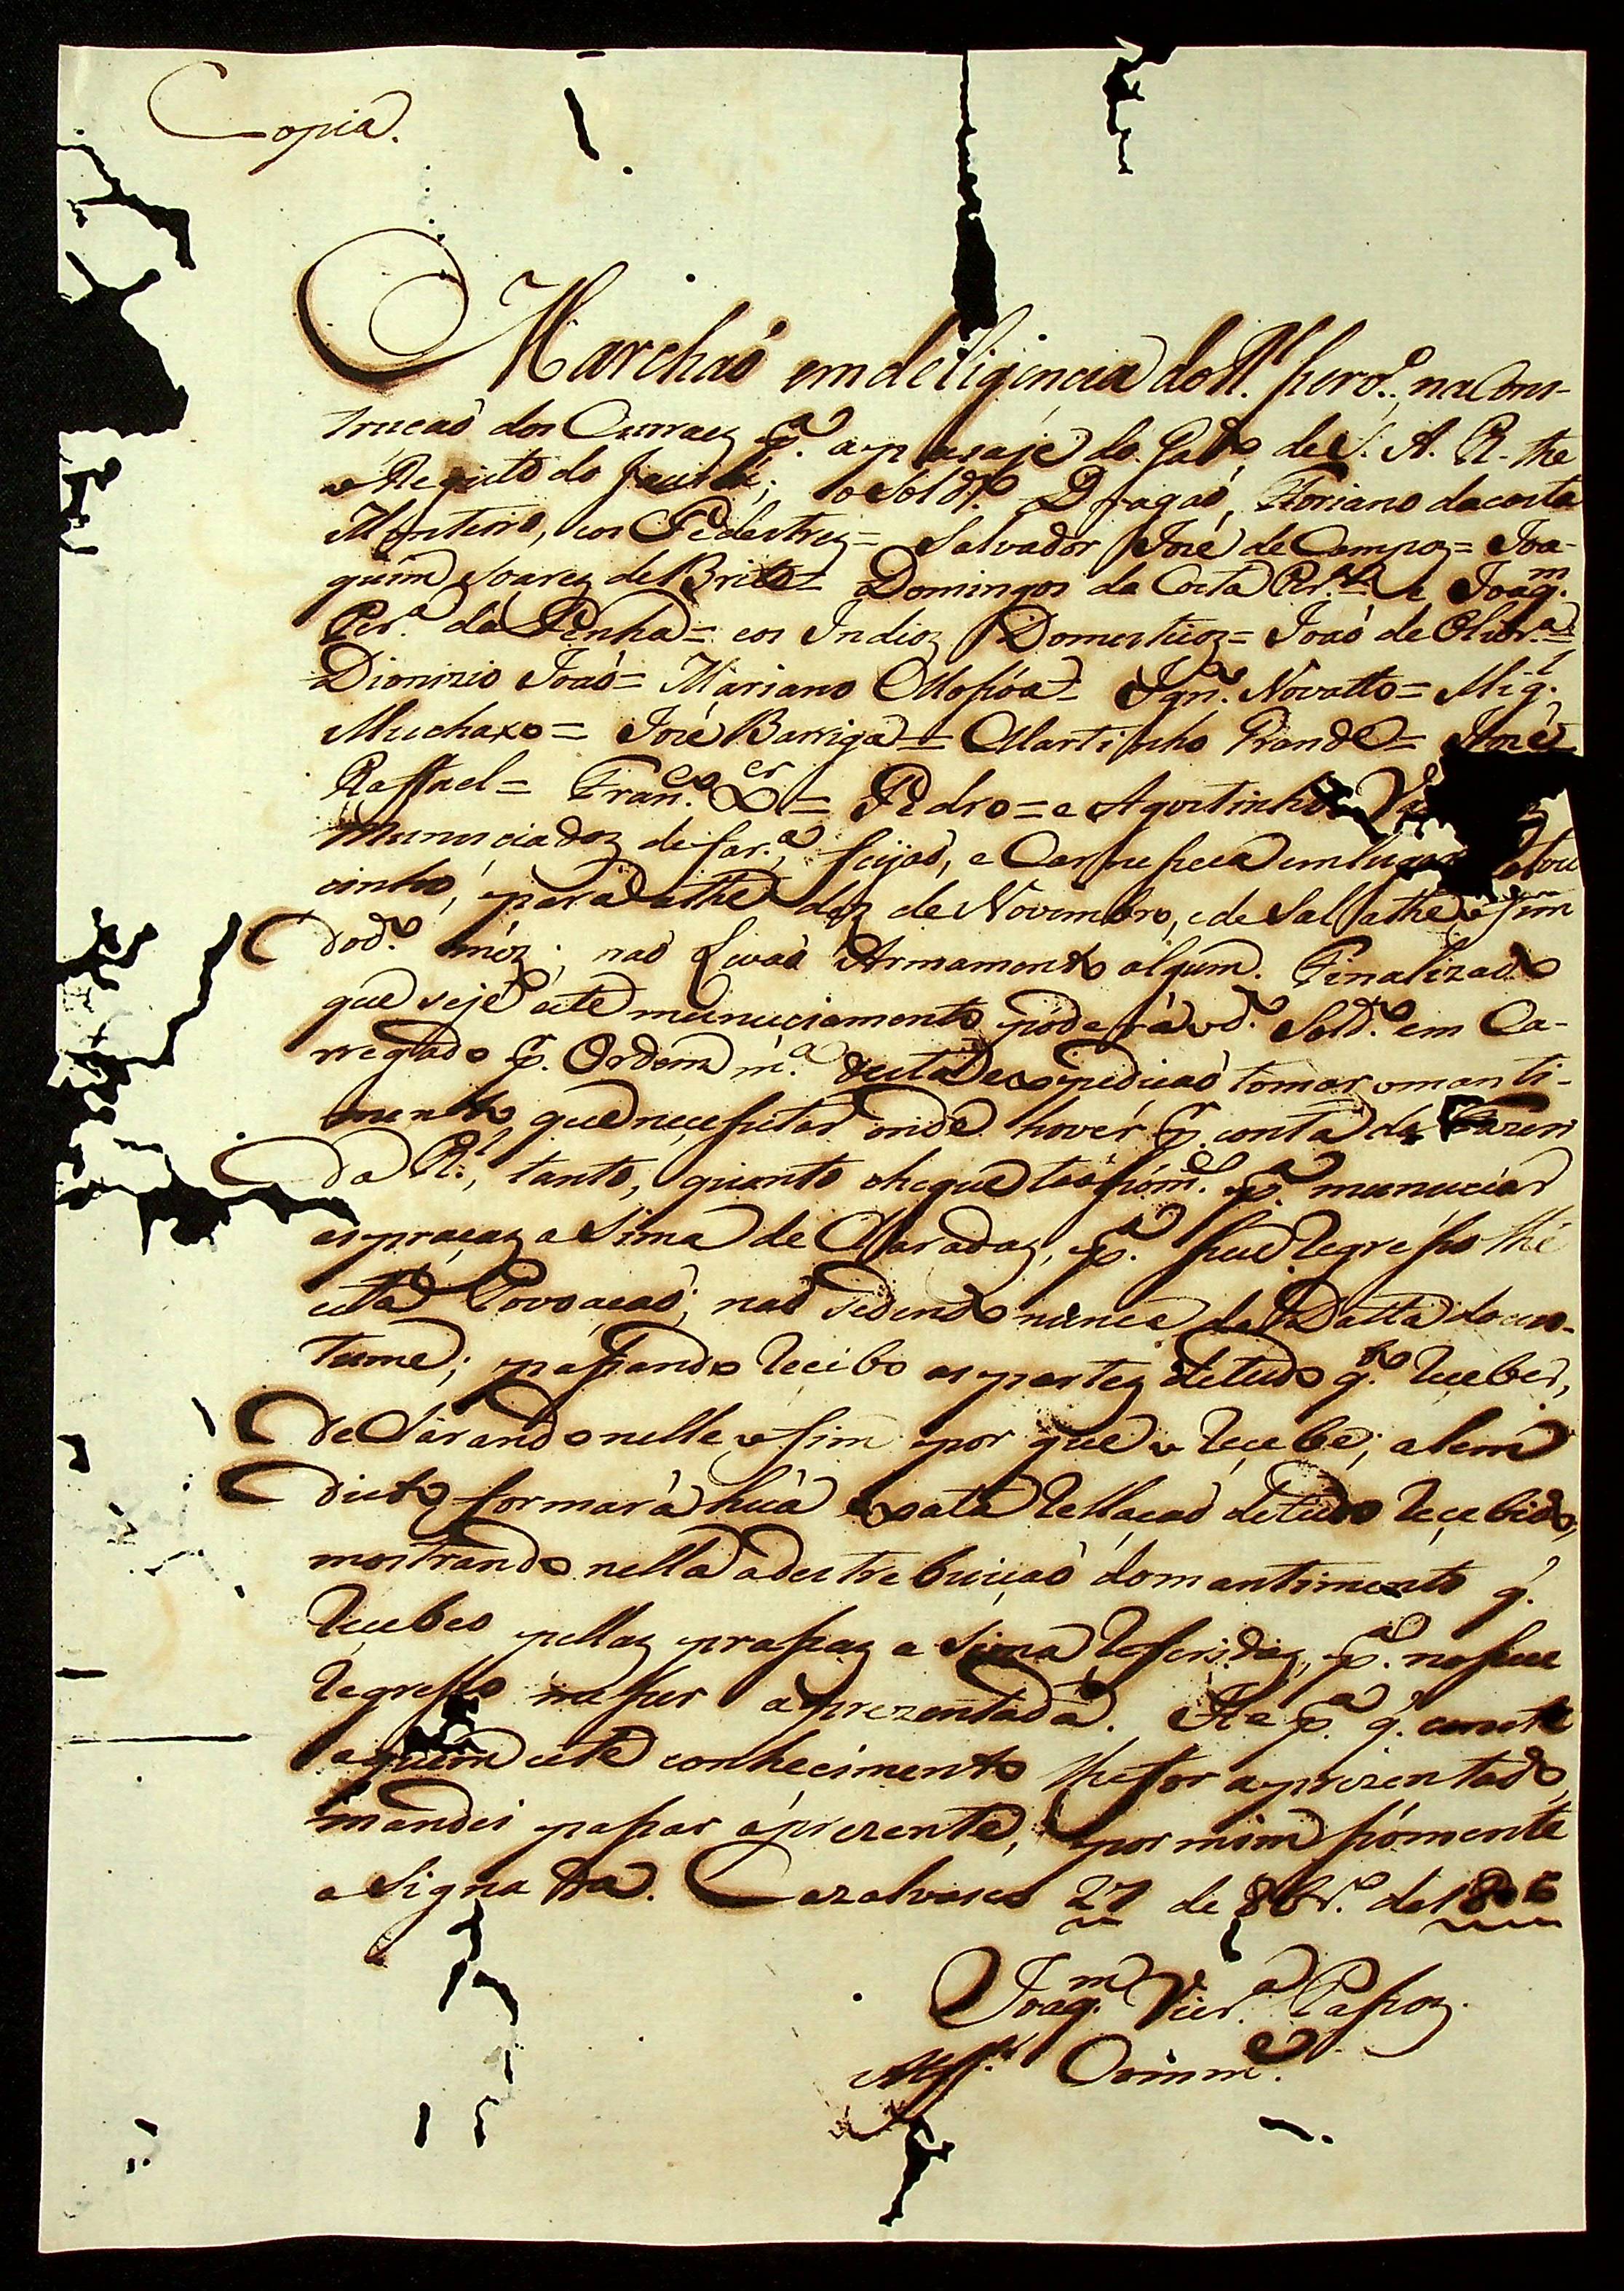 Copia.
Marchaõ em deligencia do R.l serv.o, na Cons-
trucaõ dos Curraez p.a a pasaje do Gado de S. A. R. the
o Registo do Jaurú; o Sold.o Dragaõ, Floriano da costa
Monteiro, eos Pedestrez= Salvador José de Campoz= Joa-
quim Soarez de Brito= Domingos da Costa Per.a= e Joaq.m
Per.a da Penha= eos Indioz Domesticoz= Joaõ de Olivr.a=
Dionizio Joaõ= Mariano Mossôa= Ign.o Novatto= Mig.l
Muchaxo= José Barriga= Martinho Grande= José
Raffael= Fran.co X.er= Pedro= e Agostinho. Va
Municiadoz de far.a, feijaõ, e Carne seca em lugar tou
cinho, para athe dez de Novembro, e de Sal athe o fim
do d.o mêz; naõ Levaõ Armamento algum. Finalizado
que sejê este municiamento, poderá o d.o Sold.o em Ca-
rregado p.r Ordem m.a desta expedicaõ tomar o manti-
mento que necessitar onde hovér p.r conta da Fazen
da R.l, tanto, quanto chegue taõ sóm.e p.a municiar
as pracaz a Sima de Claradaz, p.a seu regresso thé
esta Povoacaõ; naõ sedendo nunca da Datta do cos-
tume; passando recibo as partez de tudo q.to receber,
de Clarando nelle o fim por que o recebe; alem
disto formará huá exata rellacaõ de tudo recebido,
mostrando nella a destrebuicaõ do mantimento q.
recebeo pellaz prassaz a Sima referidaz, p.a no seu
regresso ma ser aprezentada. He p.a q. conste
a quem este conhecimento lhe for aprezentado,
mandei passar áprezente, por mim sómente
a Signada. Cazalvasco 27 de 8br.o de 1806
Joaq.m Vier.a Passoz.